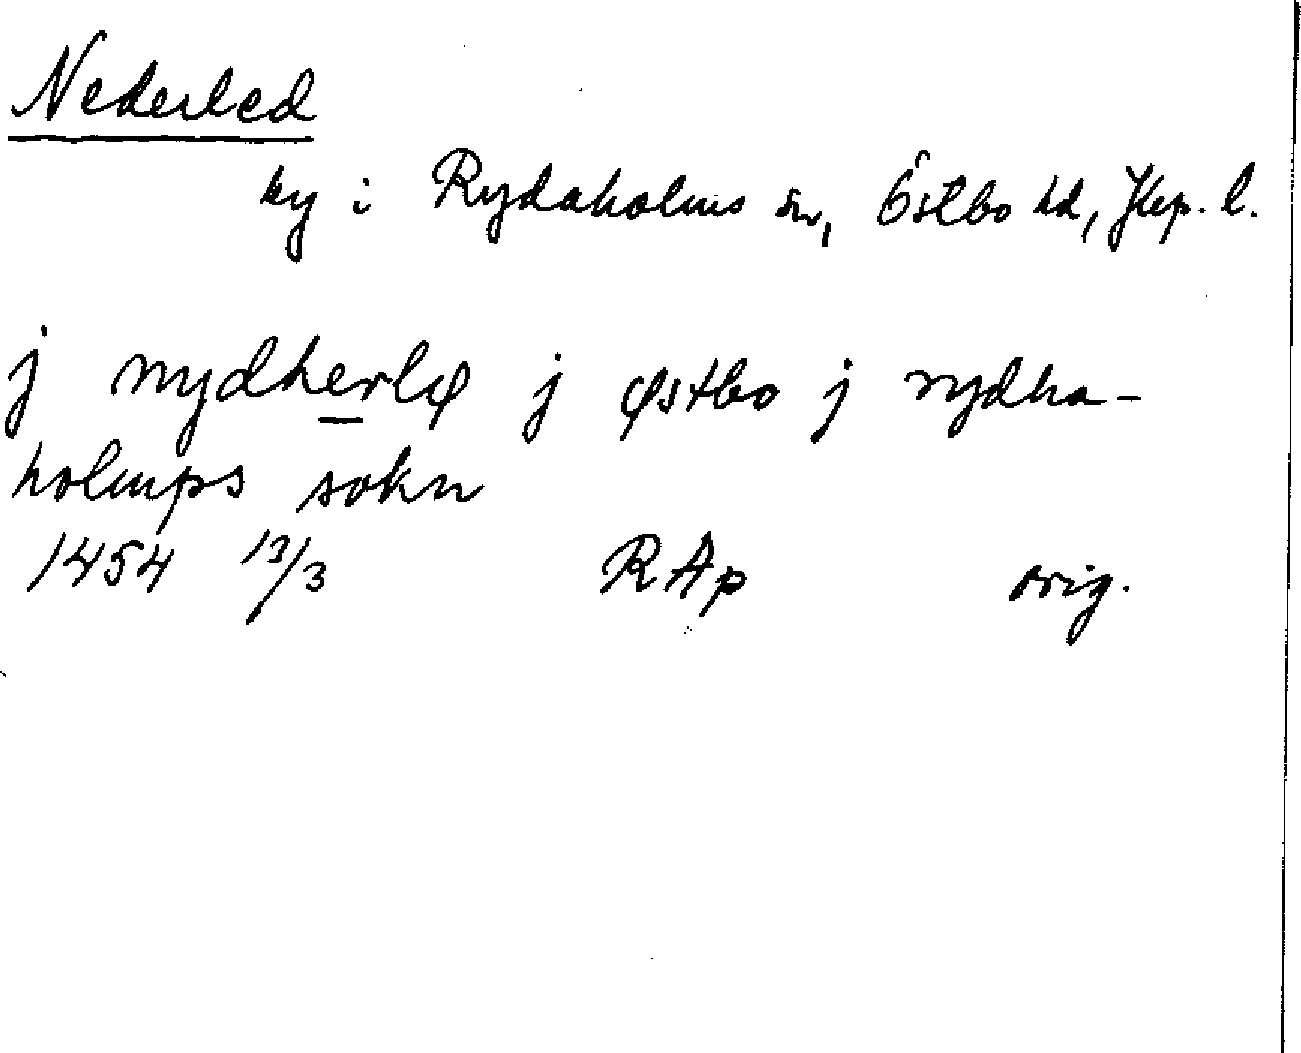 Nederled
by i Rydaholms sn, Östbo hd, Jkp. l.
j nydherlø j østbo j rydha-
holmps sokn
1454 13/3 RAp orig.